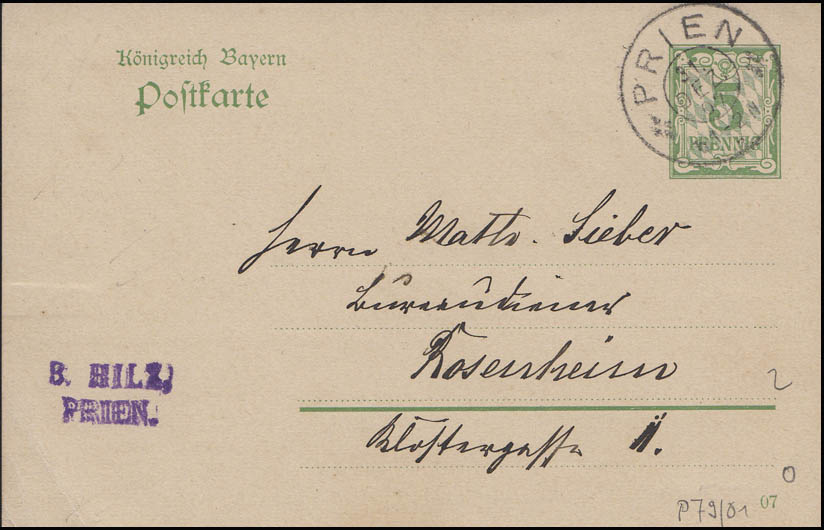 Königreich Bayern
Postkarte
PRIEN
31
DEZ
5
PFENNIG
Herrn Matth. Sieber
Bureaudiener
Rosenheim
B. HILZ,
PRIEN.
2
Klostergasse
0
P79/01 07